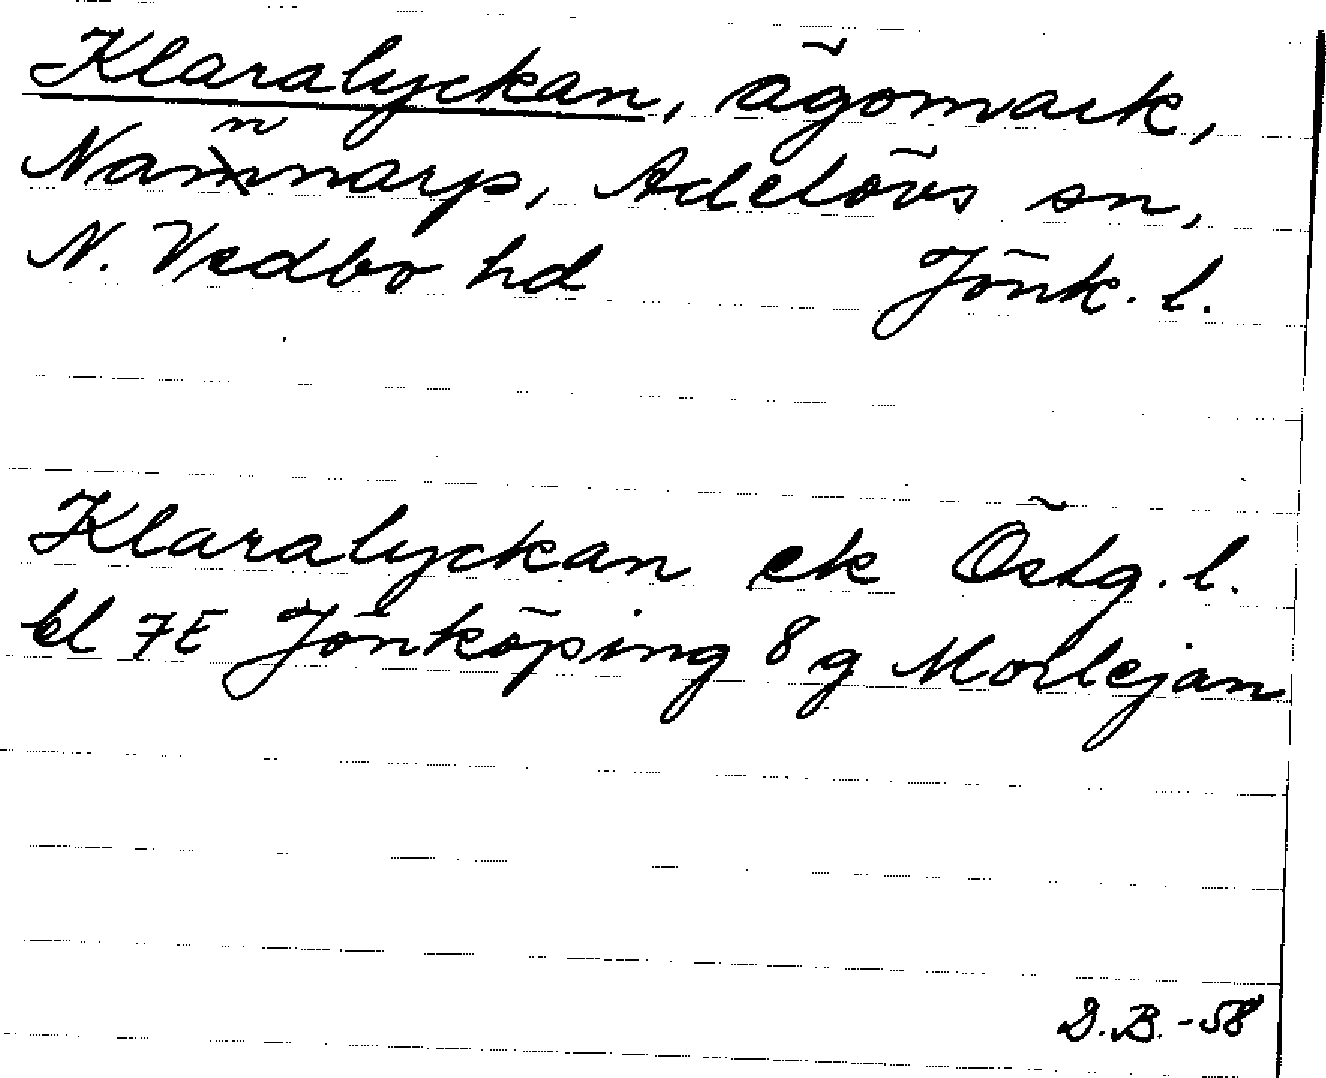 Klaralyckan, ägomark,
Nannarp, Adelövs sn,
N. Vedbo hd Jönk. l.
Klaralyckan ek Östg. l.
bl 7E Jönköping 8 g Morlejan
D.B. -58